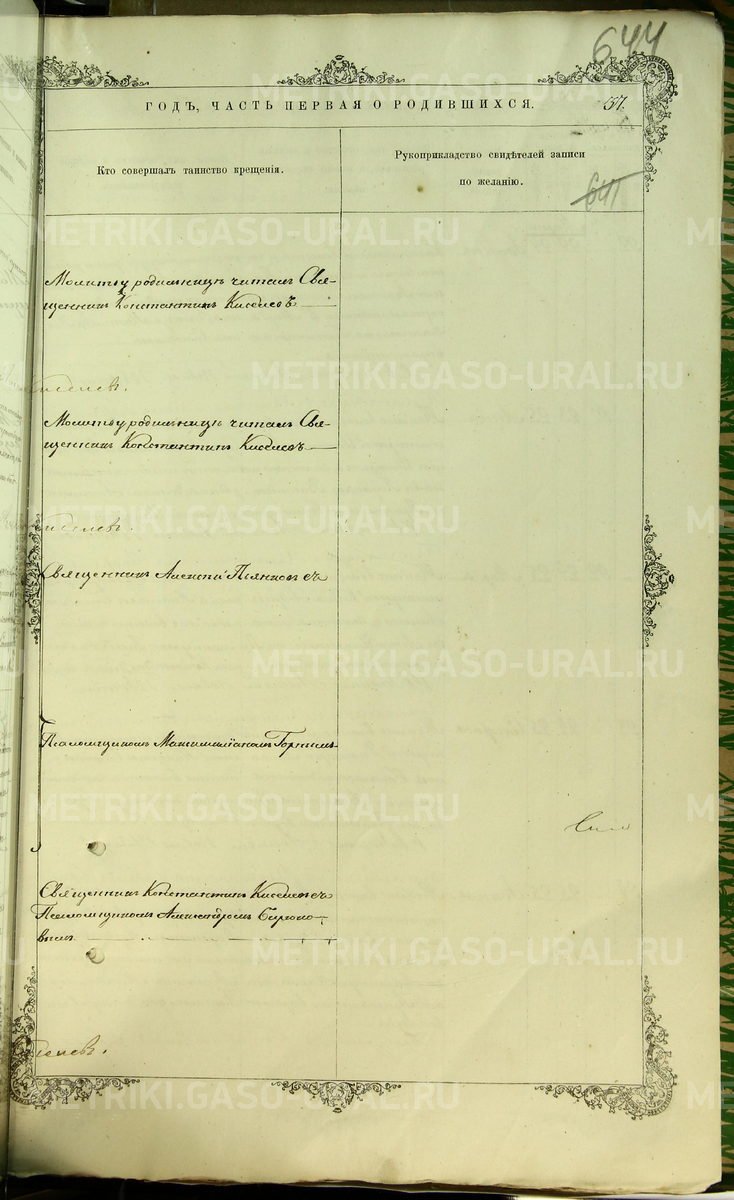 644
ГОДЪ, ЧАСТЬ ПЕРВАЯ О РОДИВШИХСЯ.
37.
Кто совершалъ таинство крещенія.
Рукоприкладство свидѣтелей записи
по желанію.
641
Молитву родильницѣ читалъ Свя-
щенникъ Константинъ Киселевъ
Киселев.
Молитву родильницѣ читалъ Свя-
щенникъ Константинъ Киселевъ
Киселевъ.
Священникъ Алексѣй Пьянковъ съ
Псаломщикомъ Максимиліаномъ Горнымъ
Священникъ Константинъ Киселевъ съ
Псаломщикомъ Александромъ
вымъ
METRIKI.GASO-URAL.RU